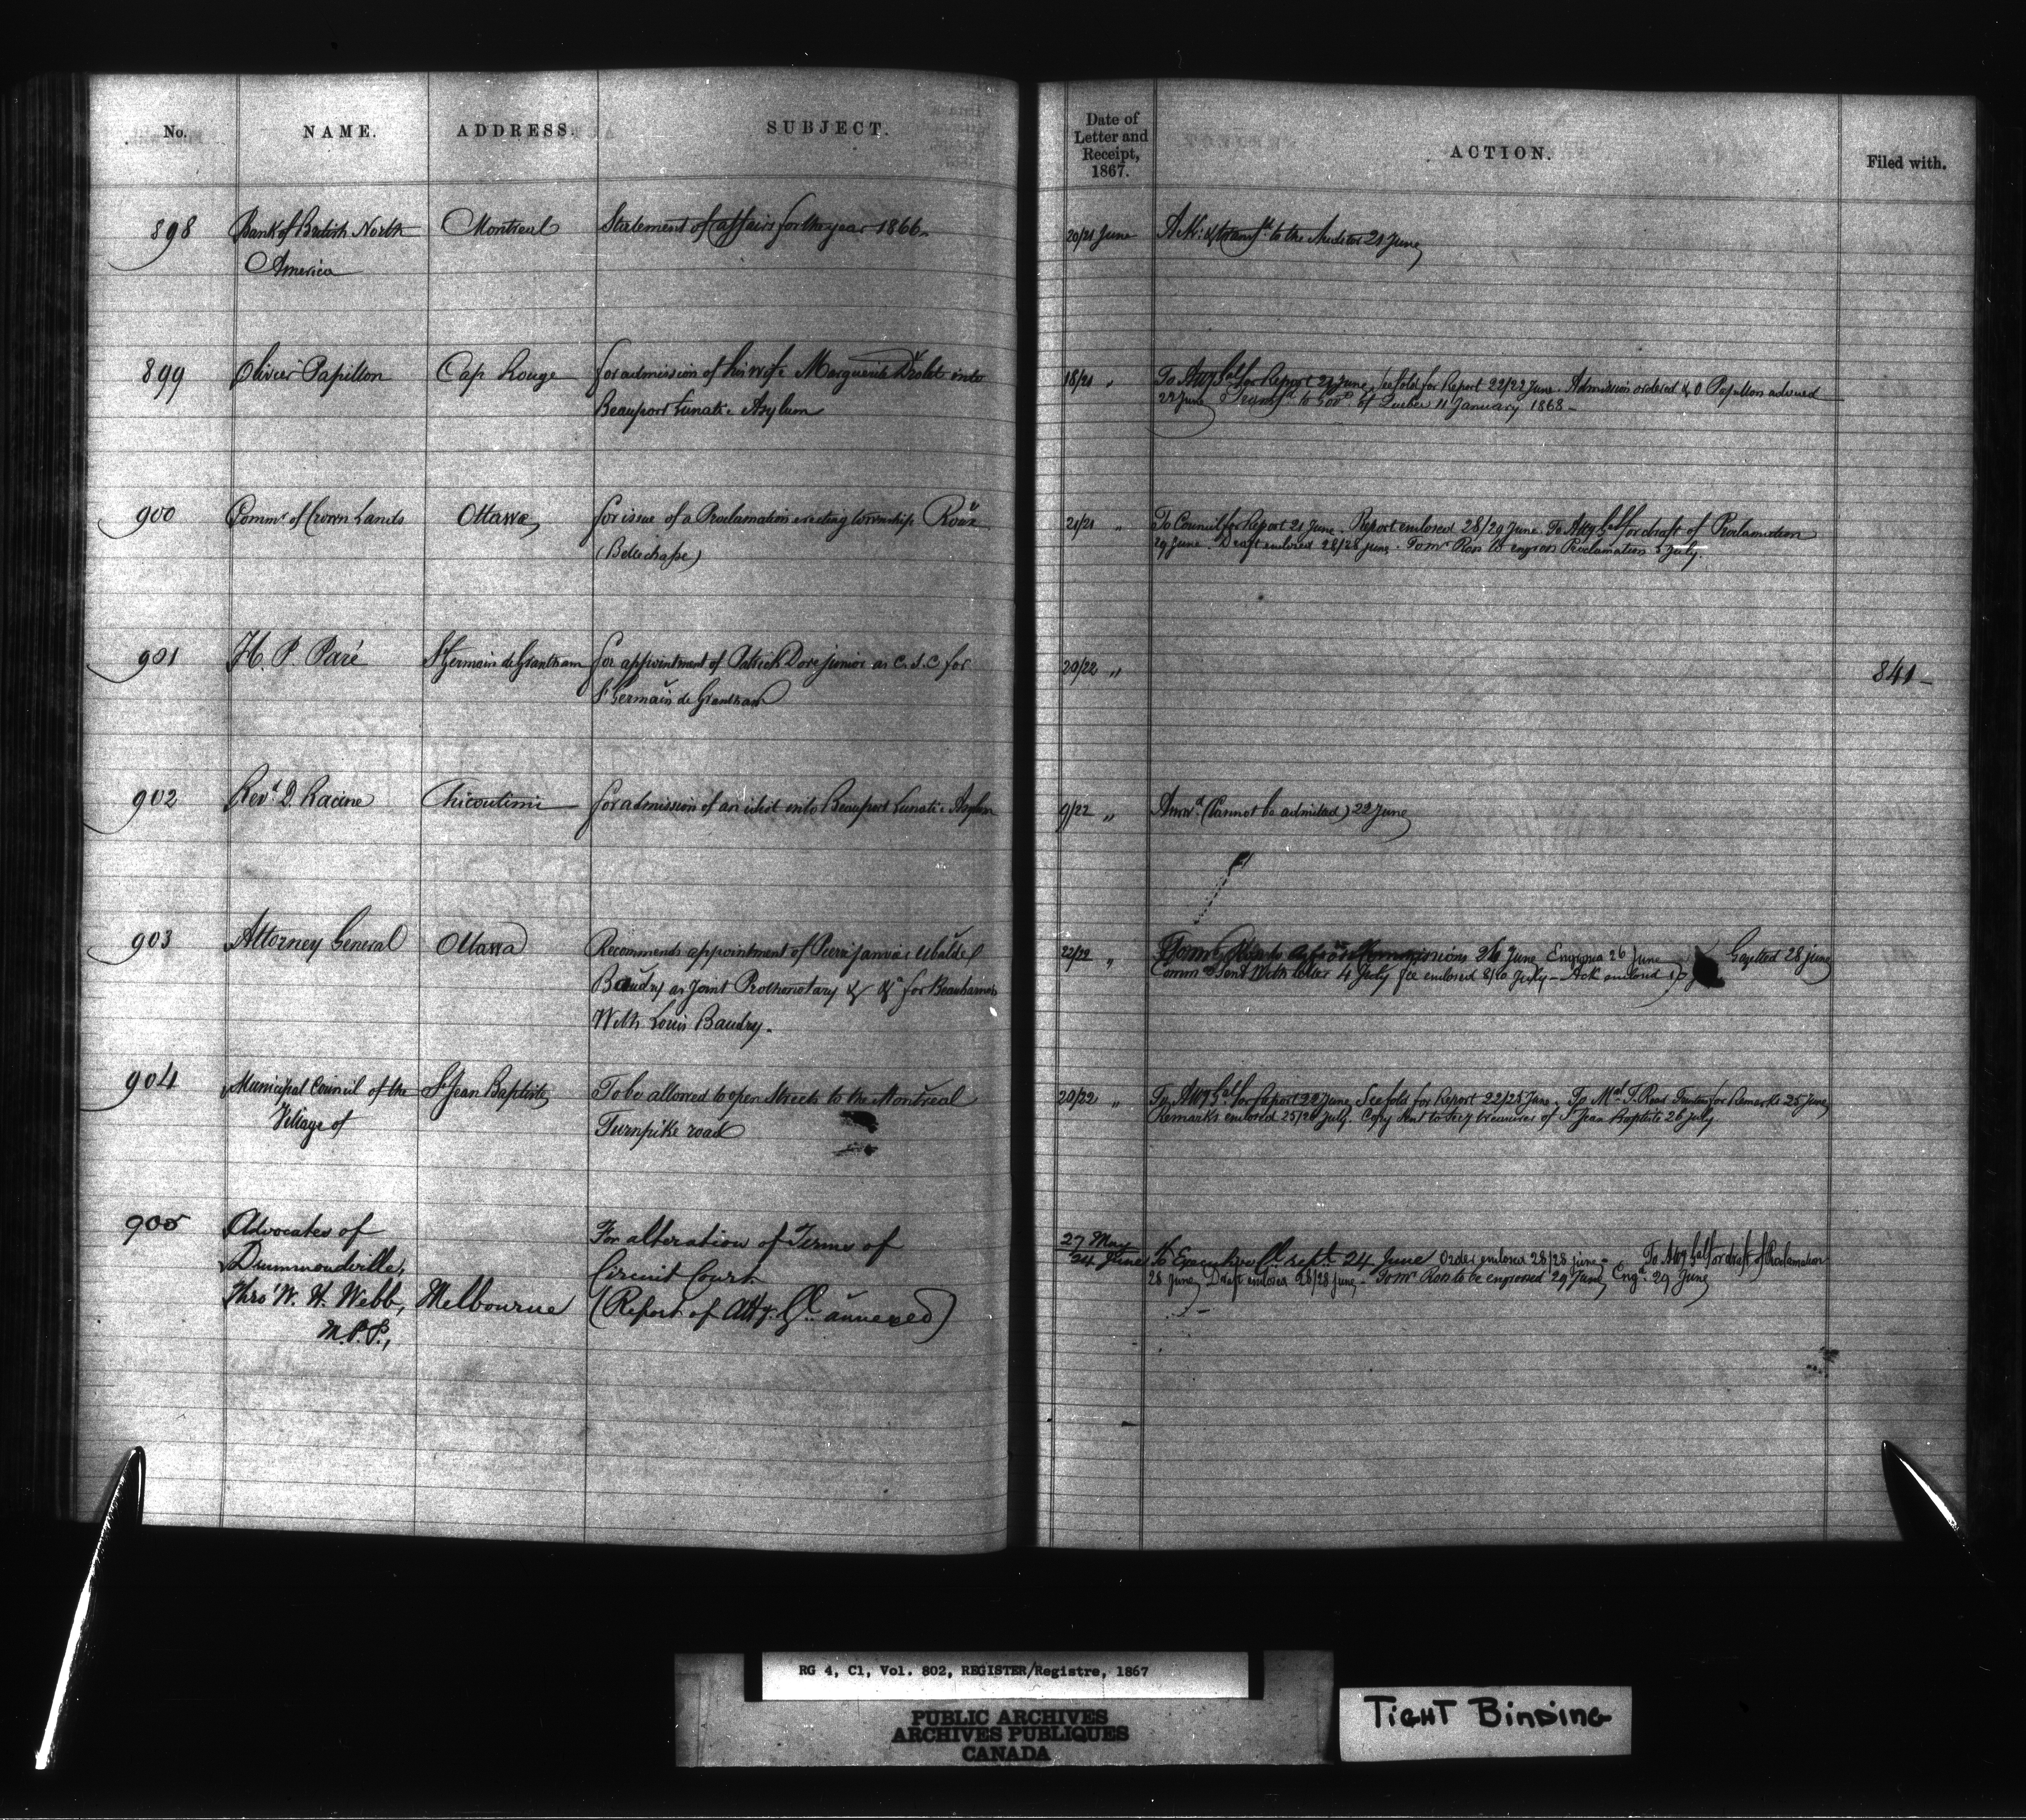 No. NAME. ADDRESS. SUBJECT. Date of Letter and Receipt, 1867. ACTION. Filed with.
898 Bank of British North Montreal Statement of affairs for the year 1866. 20/21 June Ack: & transfd to the Auditor 21 June
America
899 Olivier Papillon Cap Rouge for admission of his wife Marguerite Drolet into 18/21 " To Atty Gal for Report 21 June, See fold for Report 22/22 June. Admission ordered & O Papillon advised
Beauport Lunatic Asylum 22 June Transfd to Govt of Quebec 11 January 1868 –
900 Commr of Crown Lands Ottawa, for issue of a Proclamation erecting township Roux 21/21 " To Council for Report 21 June. Report enclosed 28/29 June. To Atty Gal for draft of Proclamation
(Bellechasse) 29 June. Draft enclosed 28/28 june. To mr Ross to engross Proclamation 2 July.
901 H. P. Paré St Germain de Grantham for appointment of Patrick Dore junior as C.S.C for 20/22 " 841 –
St Germain de Grantham
902 Revd D. Racine Chicoutimi for admission of an idiot into Beauport Lunatic Asylum 9/22 " Answd. (Cannot be admitted) 22 June
903 Attorney General Ottawa Recommends appointment of Pierre Janvier Ubalde 22/22 " Commissions 26 June Engross 26 June Gazetted 28 june
Baudry as Joint Prothonotary & &c for Beauharnois Commn Sent With letter 4 July fee enclosed 8/10 July – Ack enclosed
With Louis Baudry.
904 Municipal Council of the St Jean Baptiste To be allowed to open Streets to the Montreal 20/22 " To Atty Gal for Report 22 June, See fold for Report 22/25 June. To Mal T. Road Trustees for Remarks 25 June
Village of Turnpike road Remarks enclosed 25/26 July. Copy sent to Secy treasurer of St Jean Baptiste 26 july
905 Advocates of For alteration of Terms of 27 May
Drummondville, Circuit Court 24 June To Executive Cl rept. 24 June Order enclosed 28/28 june – To Atty Gal for draft of Proclamation
Thro' W. H. Webb, Melbourne (Report of Atty. Gl. annexed) 28 June, Draft enclosed 28/28 june – To mr Ross to be engrossed 29 June, Engd. 29 June
M.P.P.,
RG 4, C1, Vol. 802, REGISTER/Registre, 1867
PUBLIC ARCHIVES
ARCHIVES PUBLIQUES
CANADA
TIGHT BINDING